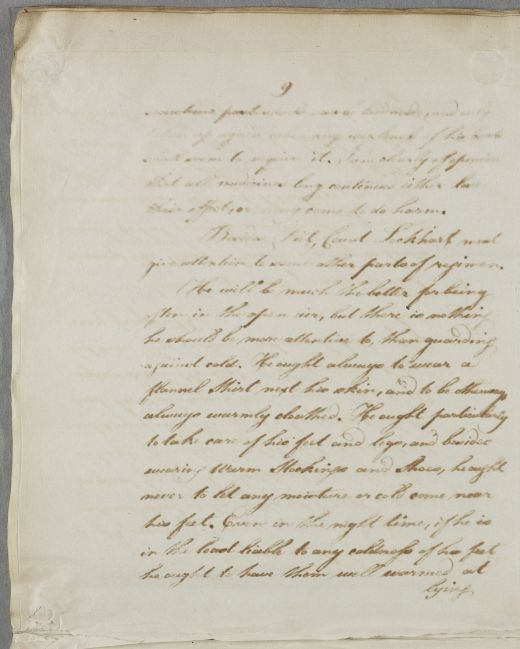 9
sometimes part weeks be laid aside, and only
taken up again when any weakness of his
seem to require it. I am clearly of opinion
that all medicines long continued either lose
their effect, or may come to do harm.
Besides Diet, Count Lockhart must
give attention to some other parts of regimen.
He will be much the better for being
often in the open air, but there is nothing
he should be more attentive to, than guarding
against cold. He ought always to wear a
flannel Shirt next his skin, and to be otherways
always warmly cloathed. He ought particularly
to take care of his feet and legs, and besides
wearing Warm Stockings and Shoes, he ought
never to let any moisture or cold come near
his feet. Even in the night time, if he is
in the least liable to any coldness of his feet
he ought to have them well warmed at
lying